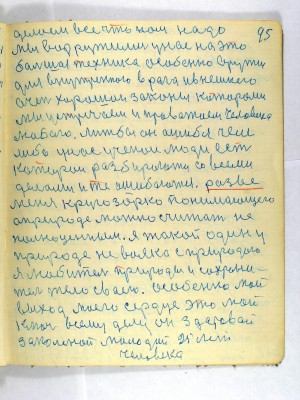 95
делаем все что нам надо
мы вооружении у нас на это
большая техника особенно внутри
для внутренного врага и внешнего
есть хорошои законы которыми
мы встречаем и провожаем человека
любого. Лиш бы он ошибся чем
либо у нас ученаи люди есть
которои разбираюти со всеми
делами и не ошибаюти. разве
меня кругозорко понимающего
в природе можно считать не
полноценным. я такой один у
природе не воюю с природою
я любител природы и сохрани-
тел тело своего. Особенно мой
выход моего сердце это мой
ключ всему делу он здаровай
законой молодый 25 лет
человека